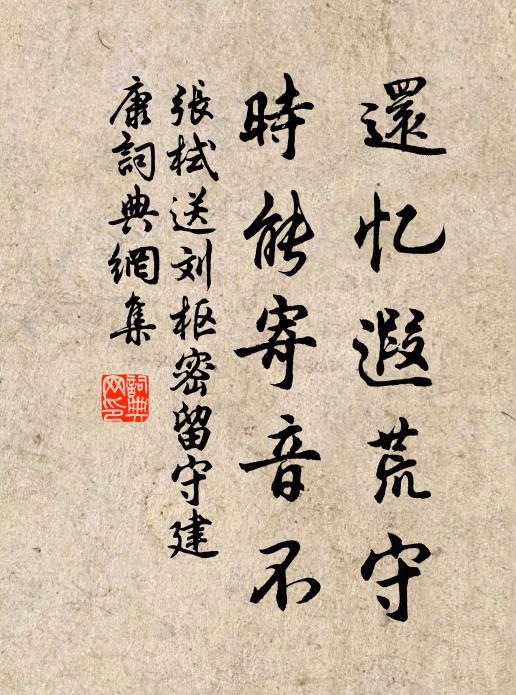 還忆遐荒守
時能寄音不
張栻送刘枢密留守建
康詞典網集
詞典网印